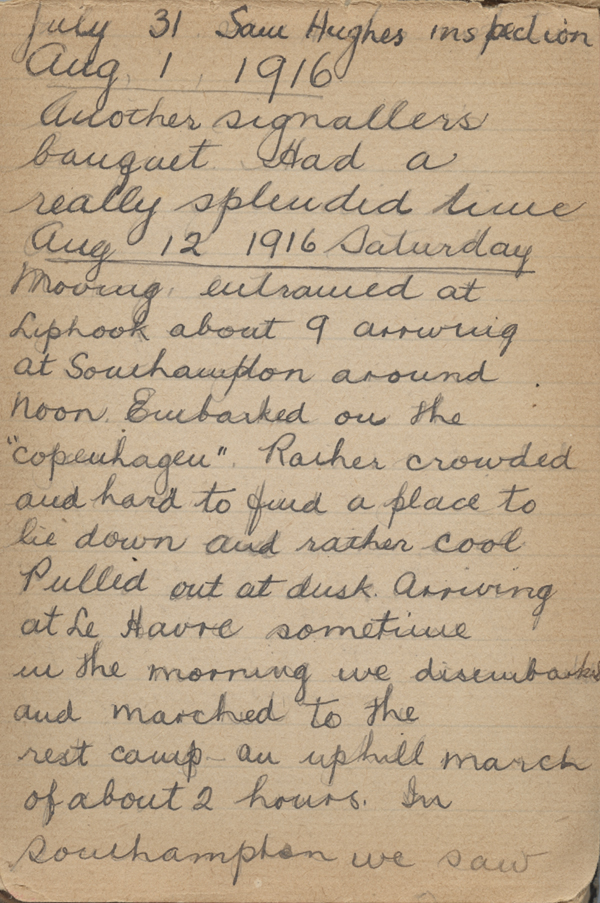 July 31 Sam Hughes inspection
Aug. 1, 1916
Another signallers
banquet Had a
really splendid time
Aug 12 1916 Saturday
Moving. entrained at
Liphook about 9 arriving
at Southampton around
noon. Embarked on the
"Copenhagen". Rather crowded
and hard to find a place to
lie down and rather cool
Pulled out at dusk. Arriving
at Le Havre sometime
in the morning we disembarked
and marched to the
rest camp - an uphill march
of about 2 hours. In
Southampton we saw